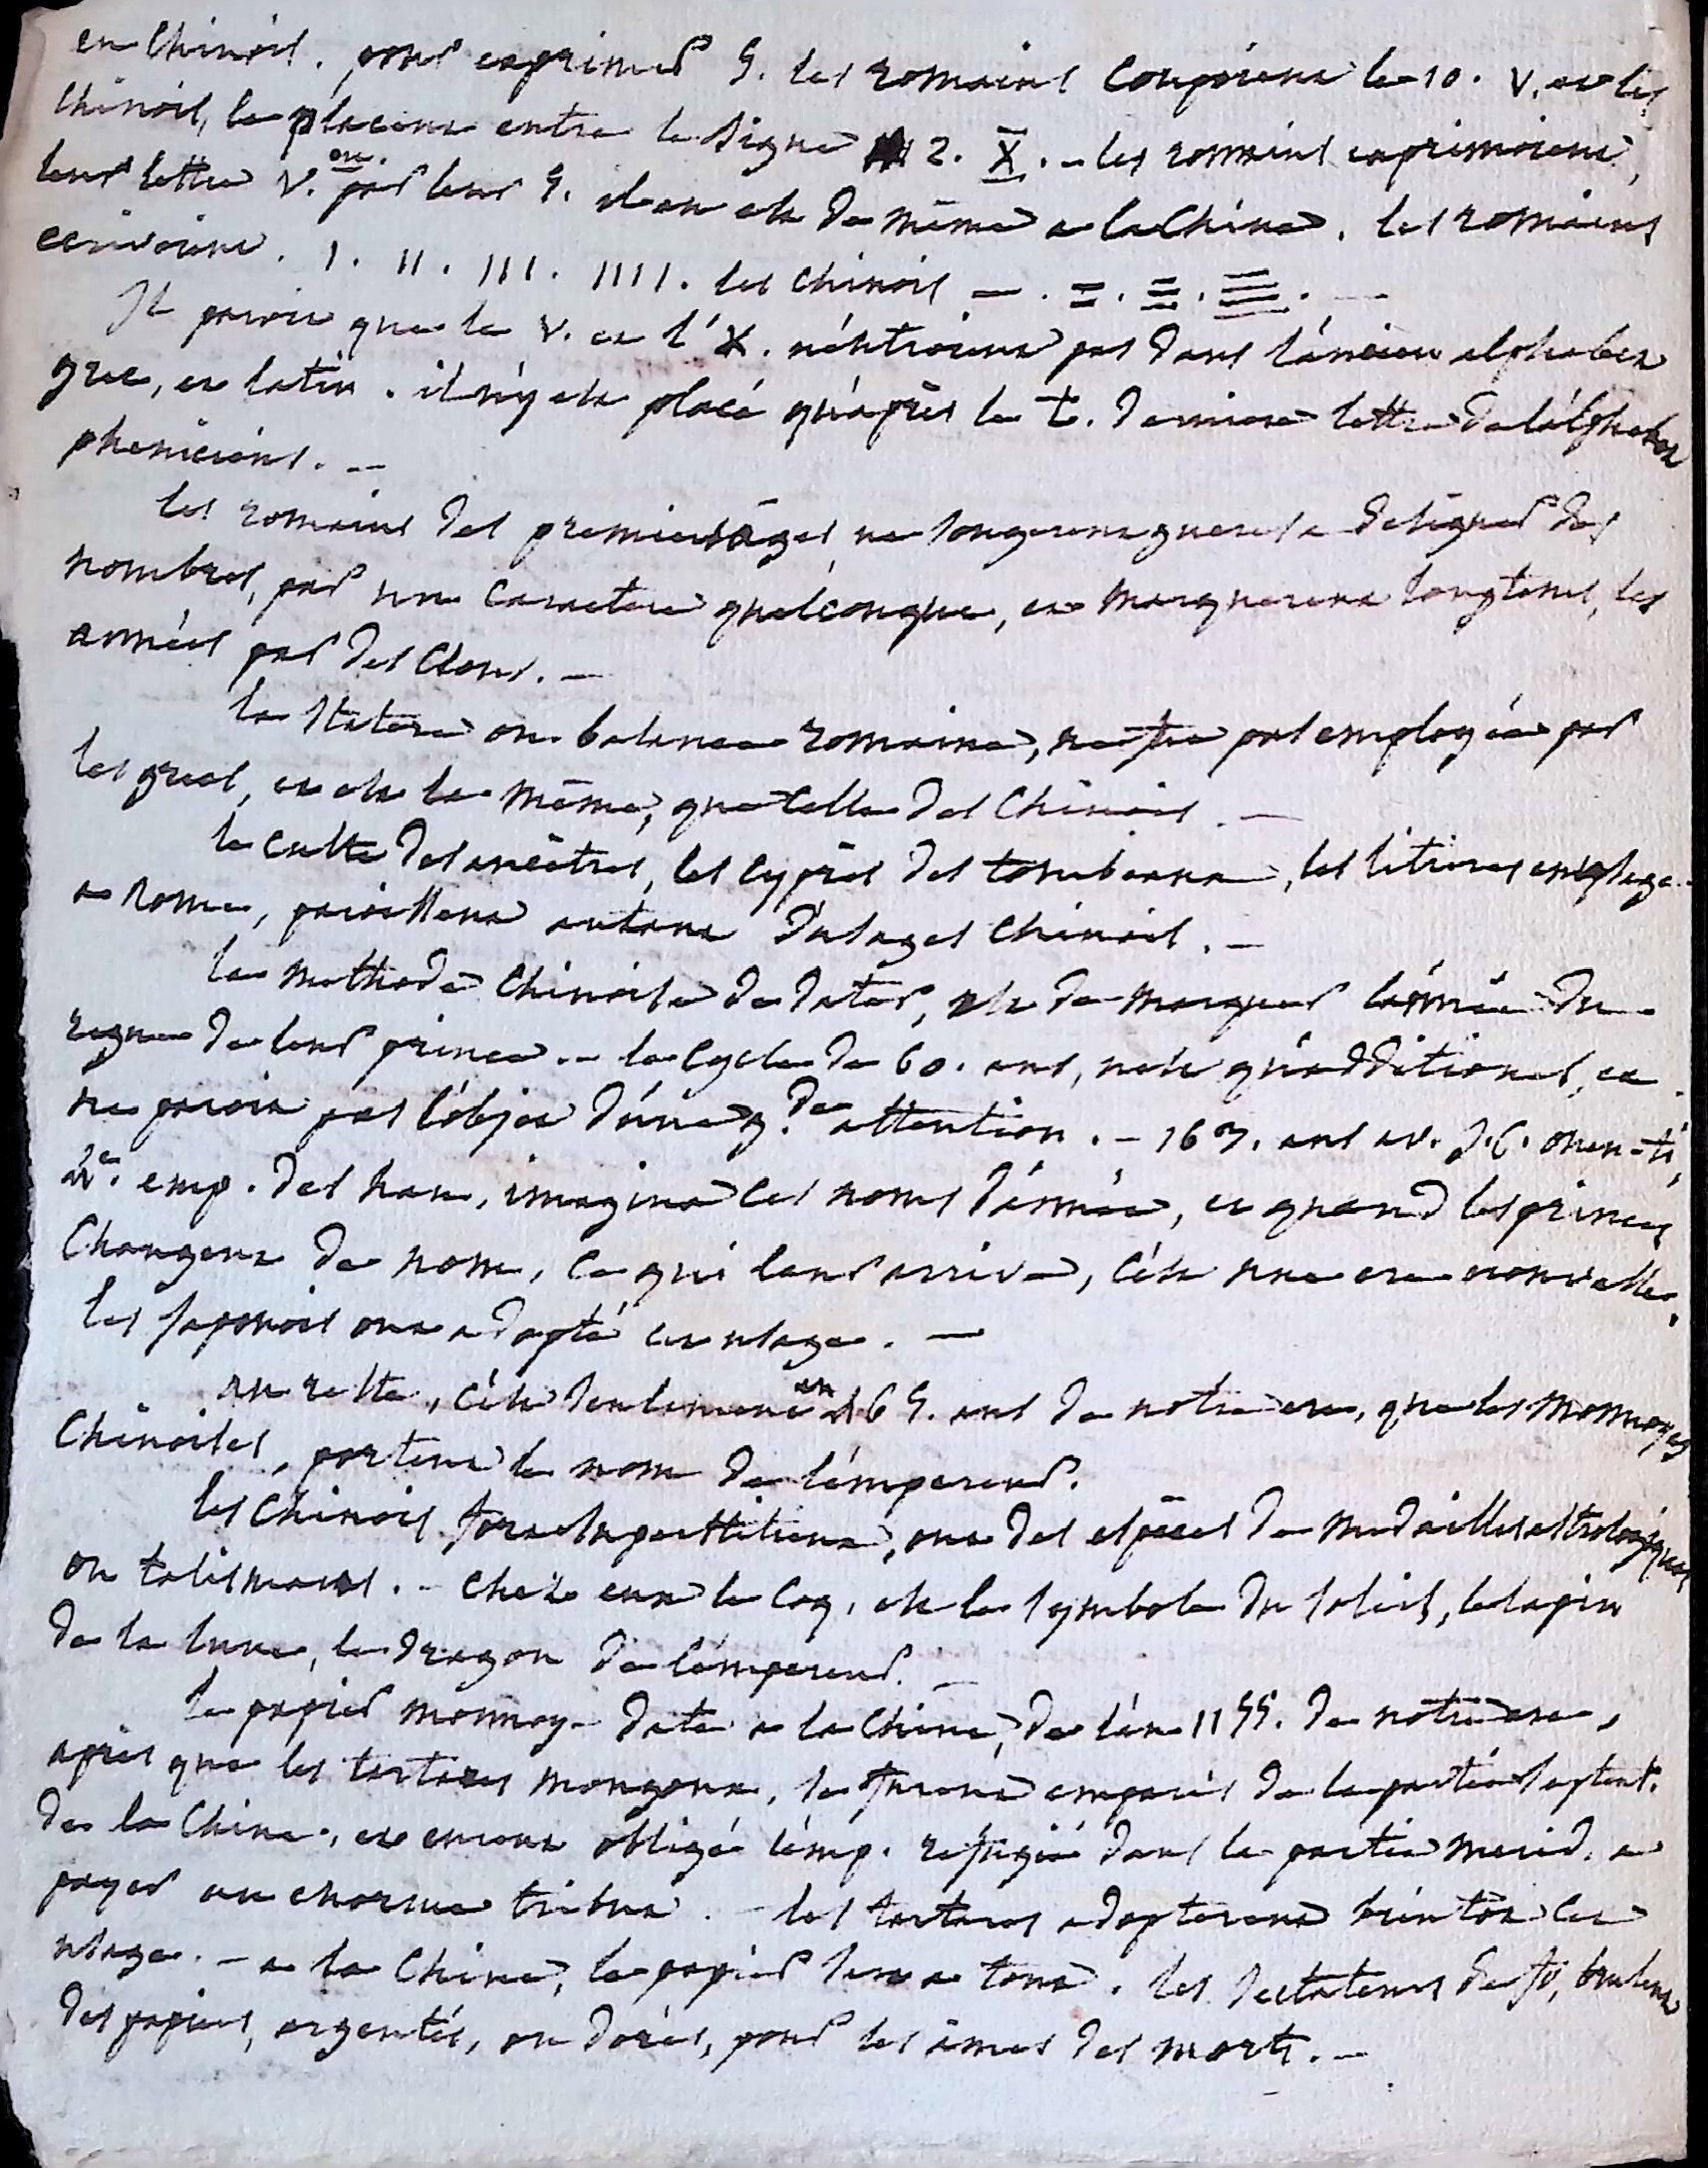 en chinois. pour exprimer 5. les romains coupoient le 10. V. et les
chinois, le placent entre le signe 2. X. - les romains exprimoient,
leur lettre V. ou. par leur 5. il en est de même a la Chine. les romains
ecrivoient. I. II. III. IIII. les chinois 一. 二. 三. 亖. —
Il paroit que le V. et l'X. n'entroient pas dans l'ancien alphabet
grec, et latin. il n'y est placé qu'après le t. derniere lettre de l'alphabet
phenicien. —
les romains des premiers âges, ne songerent gueres a designer des
nombres, par un caractere quelconque, et marquerent longtems, les
années par des clous. —
la statere ou balance romaine, ne fut pas employée par
les grecs, et est la même, que celle des Chinois. —
le culte des ancêtres, les cyprès des tombeaux, les litieres en usage
a Rome, paroissent autant d'usages chinois. —
la methode chinoise de dater, est de marquer l'année du
regne de leur prince. - le cycle de 60. ans, n'est qu'additionel, et
ne paroit pas l'objet d'une g.de attention. - 163. ans av. J.C. ouen-ti,
2e. emp. des han, imagina ces noms d'année, et quand les princes
changent de nom, ce qui leur arrive, c'est une ere nouvelle.
les Japonois ont adopté cet usage. —
au reste, c'est seulement en 465. ans de notre ere, que les monnoyes
chinoises, portent le nom de l'empereur.
les Chinois fort superstitieux, ont des especes de medailles astrologiques
ou talismans. - chez eux le coq, est le symbole du soleil, le lapin
de la lune, le dragon de l'empereur. —
le papier monnoy date a la Chine, de l'an 1155. de notre ere,
après que les tartares mongoux, se furent emparés de la partie septent.
de la Chine, et eurent obligé l'emp. refugié dans la partie merid. a
payer un enorme tribut. - les tartares adopterent bientôt cet
usage. - a la Chine, le papier sert a tout. les sectateurs de fo, brulent
des papiers, argentés, ou dorés, pour les âmes des morts. —